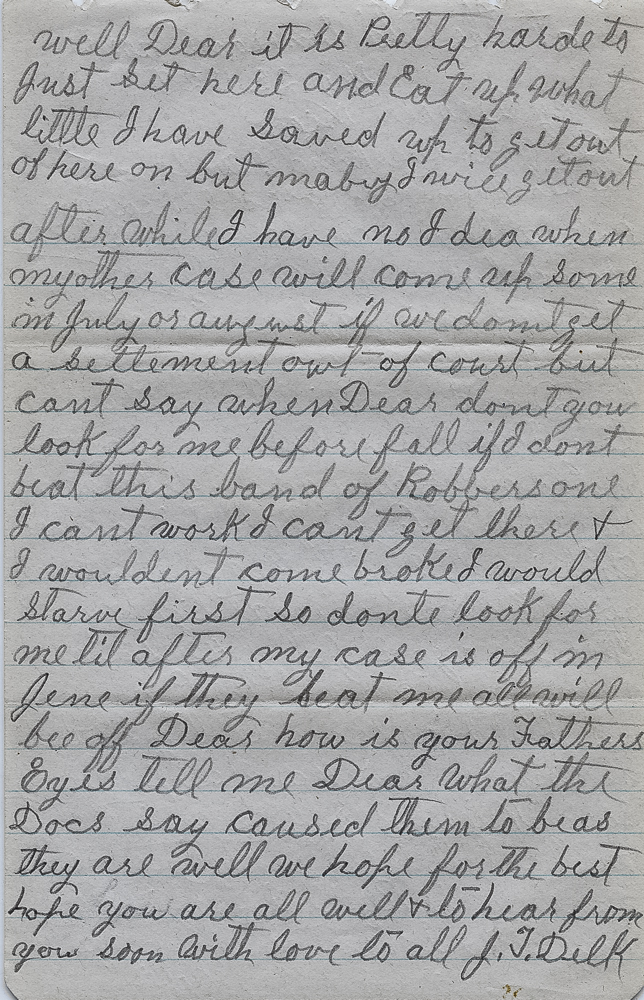 well Dear it is Pretty harde to
Just Set here and Eat up what
little I have Saved up to get out
of here on but mabry I will get out
after while I have no I dea when
my other case will come up Some
in July or august if we domt get
a settement out of court but
cant say when Dear dont you
look for me before fall if I dont
beat this band of Robbers one
I cant work I cant get there &
I wouldent come broke I would
Starve first So donte look for
me til after my case is off in
June if they beat me all will
bee off Dear how is your Fathers
Eyes tell me Dear what the
Docs say caused them to be as
they are well we hope for the best
hope you are all well & to hear from
you soon with love to all J. T. Delk